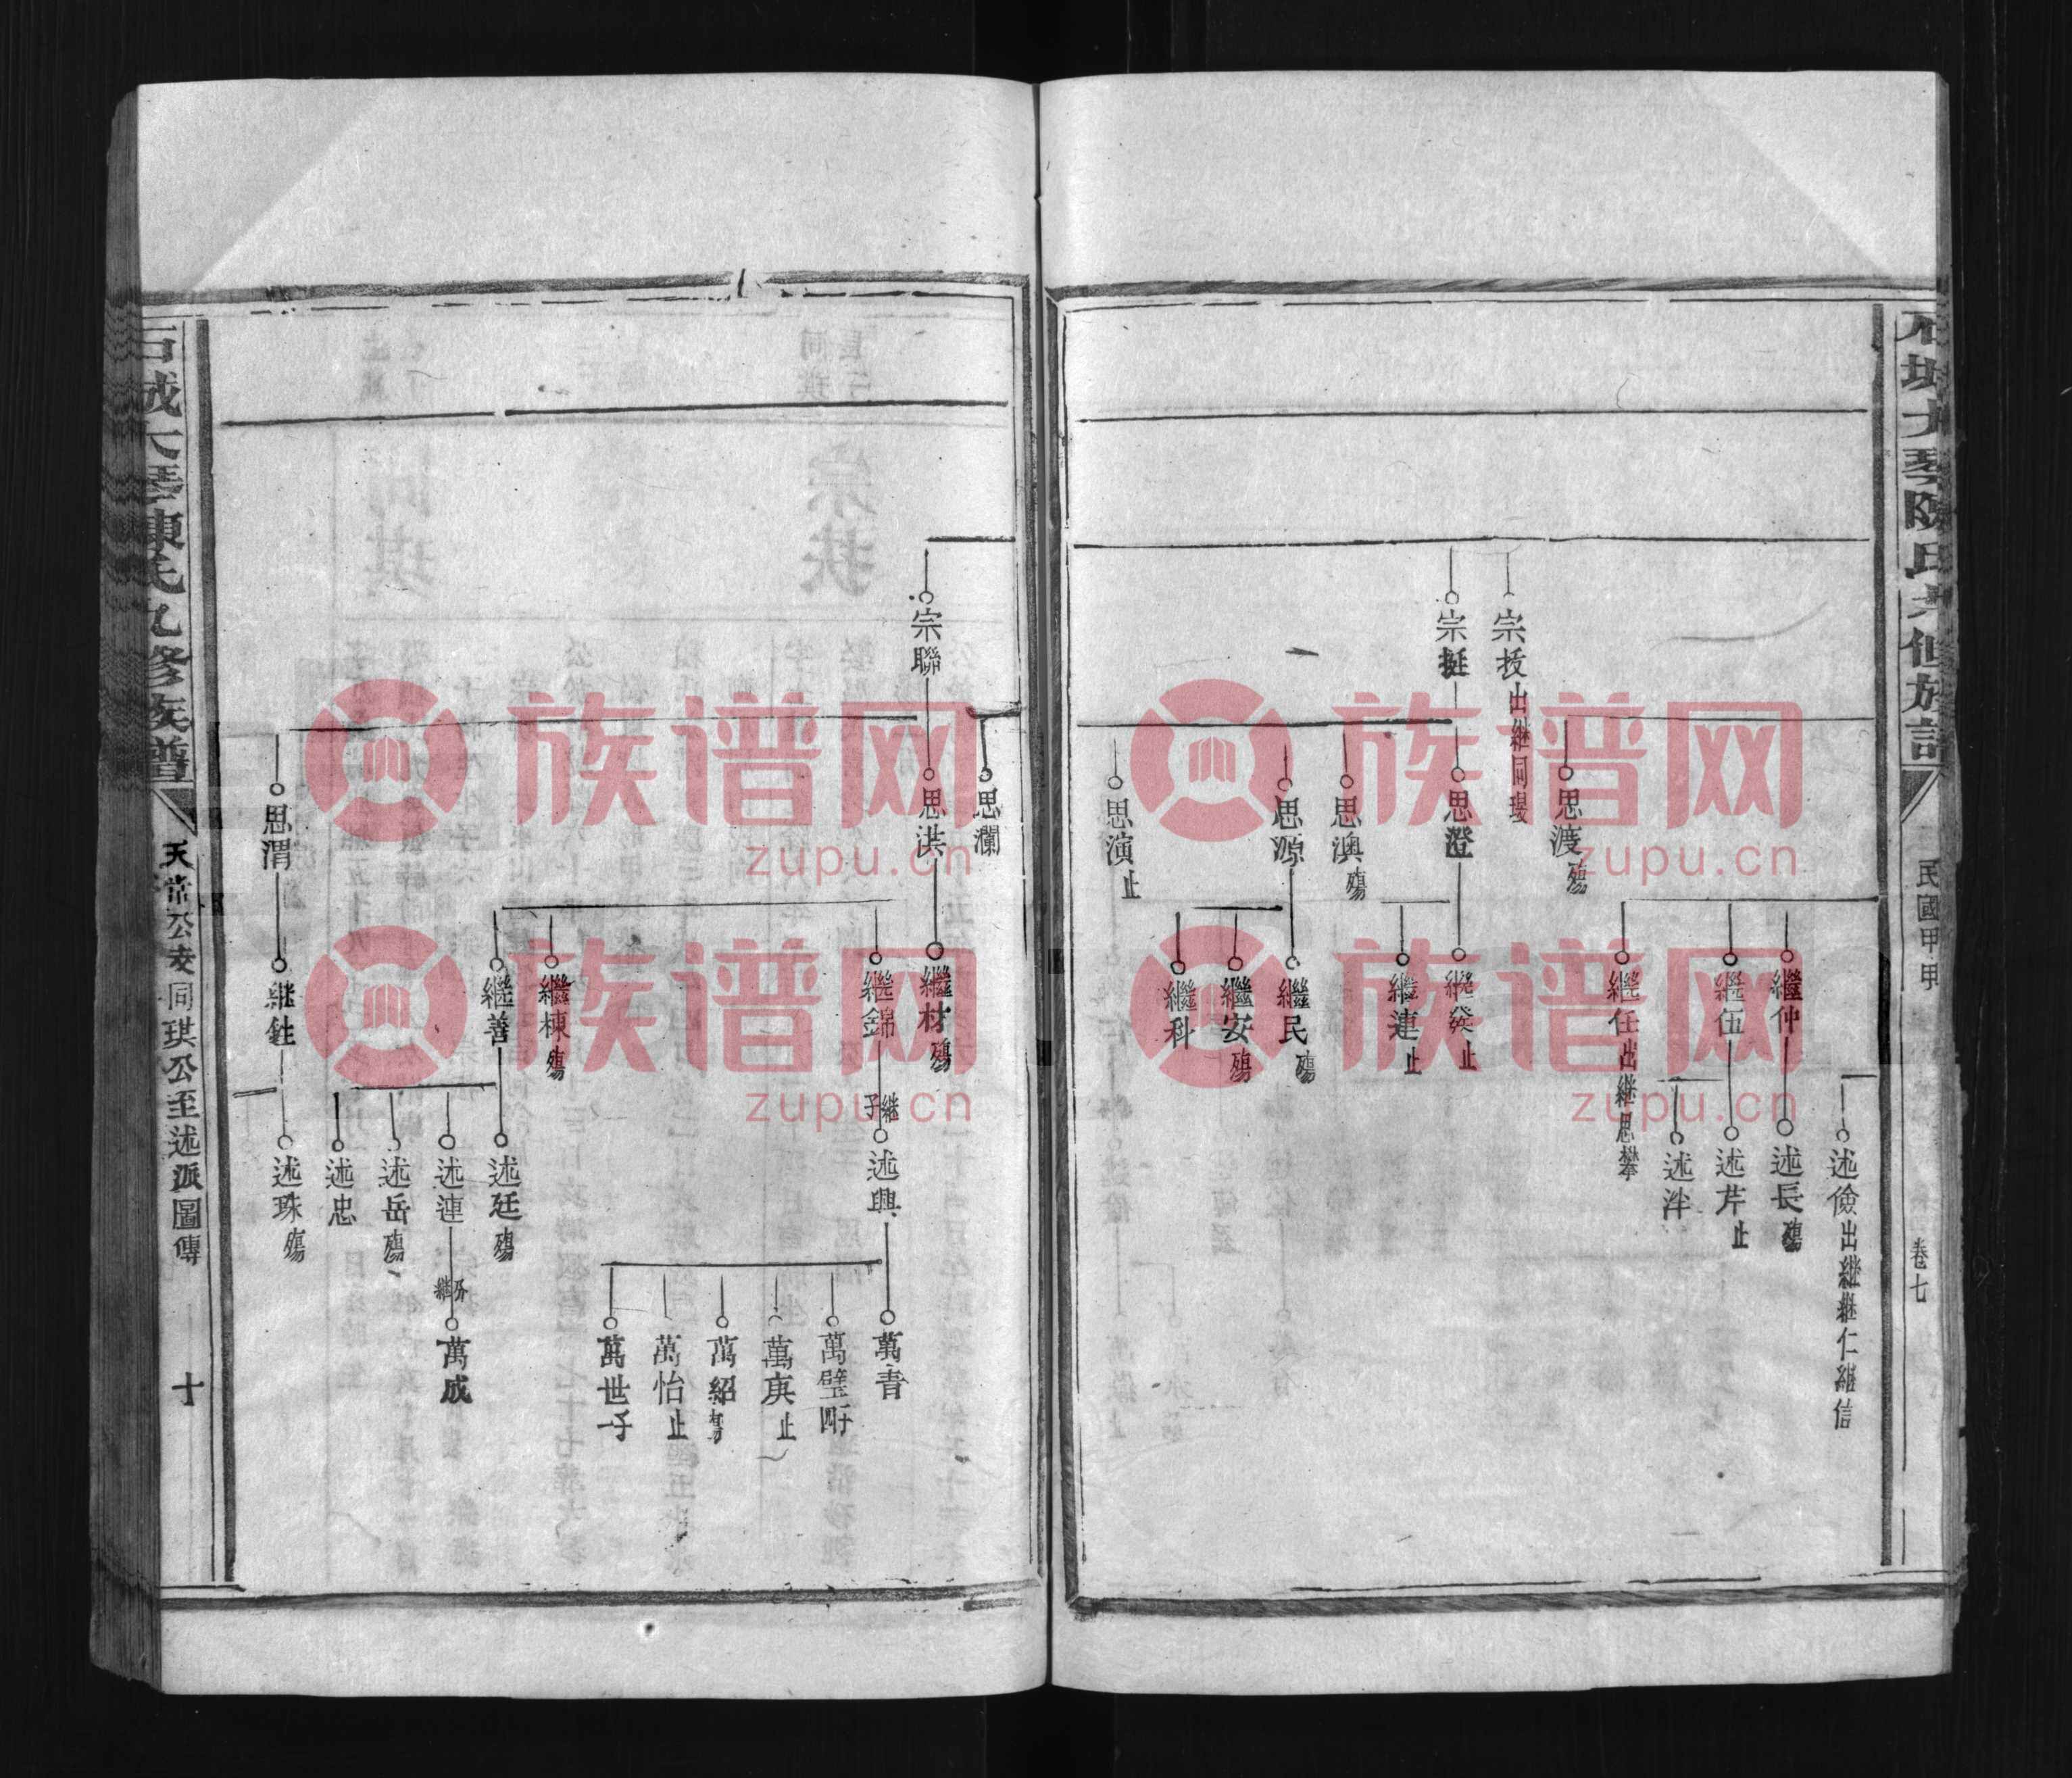 民國甲申
卷七
述儉出繼繼仁繼信
繼仲
述長殤
繼伍
述芹止
述泮
繼任出繼思攀
思渡殤
宗技出繼同璦
宗挺
思澄
繼癸止
繼連止
思澳殤
思源
繼民殤
繼安殤
繼科
思演止
思瀾
宗聯
思洪
繼材殤
繼錦
繼子
述興
萬青
萬璧
萬庚止
萬紹
萬怡止
萬世
繼棟殤
繼善
述廷殤
述連
萬成
述岳殤
述忠
思渭
繼鉎
述珠殤
石城大琴陳氏九修族譜
天常公凌同琪公至述派圖傳
十
族谱网
zupu.cn
族谱网
zupu.cn
族谱网
zupu.cn
族谱网
zupu.cn